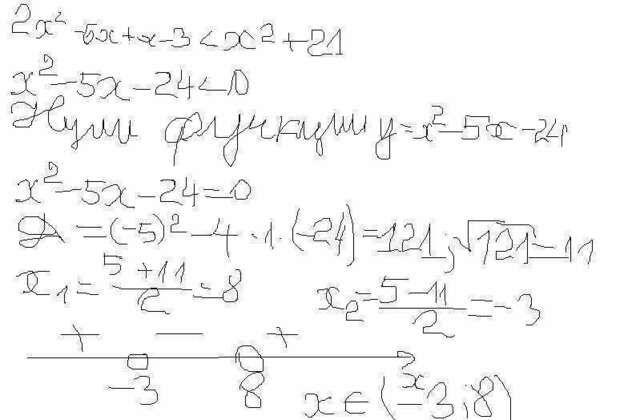 2x² -5x+x-3<x²+21
x²-5x-24<0
Нули функции y=x²-5x-24
x²-5x-24=0
D=(-5)²-4·1·(-24)=121; √121=11
x₁=(5+11)/2=8 x₂=(5-11)/2=-3
+ — +
-3 8 x
x∈(-3;8)